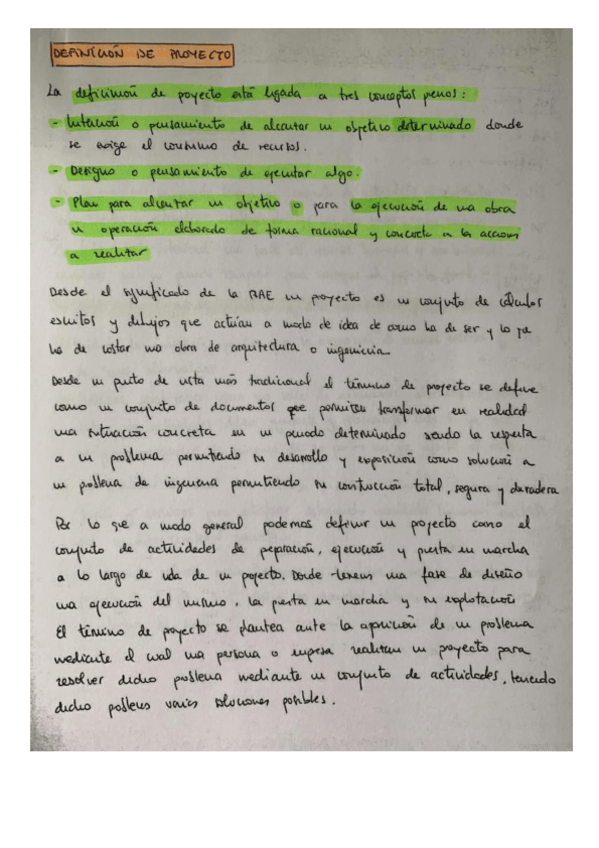 DEFINICIÓN DE PROYECTO
La definición de proyecto está ligada a tres conceptos previos:
- Intención o pensamiento de alcanzar un objetivo determinado donde
se exige el consumo de recursos.
- Designo o pensamiento de ejecutar algo.
- Plan para alcanzar un objetivo o para la ejecución de una obra
u operación elaborado de forma racional y concreta en las acciones
a realizar
Desde el significado de la RAE un proyecto es un conjunto de cálculos
escritos y dibujos que actúan a modo de idea de como ha de ser y lo que
ha de costar una obra de arquitectura o ingeniería.
Desde un punto de vista más tradicional el término de proyecto se define
como un conjunto de documentos que permiten transformar en realidad
una situación concreta en un periodo determinado siendo la respuesta
a un problema permitiendo su desarrollo y exposición como solución a
un problema de ingeniería permitiendo su construcción total, segura y duradera
Por lo que a modo general podemos definir un proyecto como el
conjunto de actividades de preparación, ejecución y puesta en marcha
a lo largo de vida de un proyecto. Donde tenemos una fase de diseño
una ejecución del mismo, la puesta en marcha y su explotación
El término de proyecto se plantea ante la aparición de un problema
mediante el cual una persona o empresa realizan un proyecto para
resolver dicho problema mediante un conjunto de actividades, teniendo
dicho problema varias soluciones posibles.